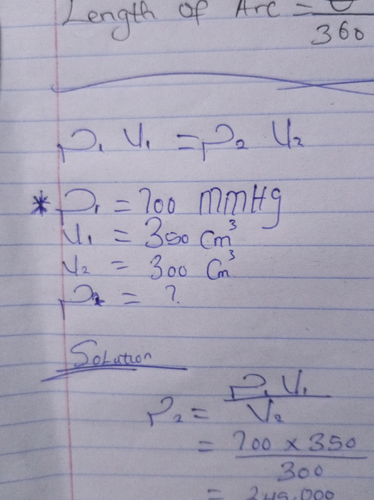 Length of Arc = θ
360
P₁ V₁ = P₂ V₂
* P₁ = 700 mmHg
V₁ = 350 Cm³
V₂ = 300 Cm³
P₂ = ?
Solution
P₂ = P₁ V₁
V₂
= 700 x 350
300
= 245,000